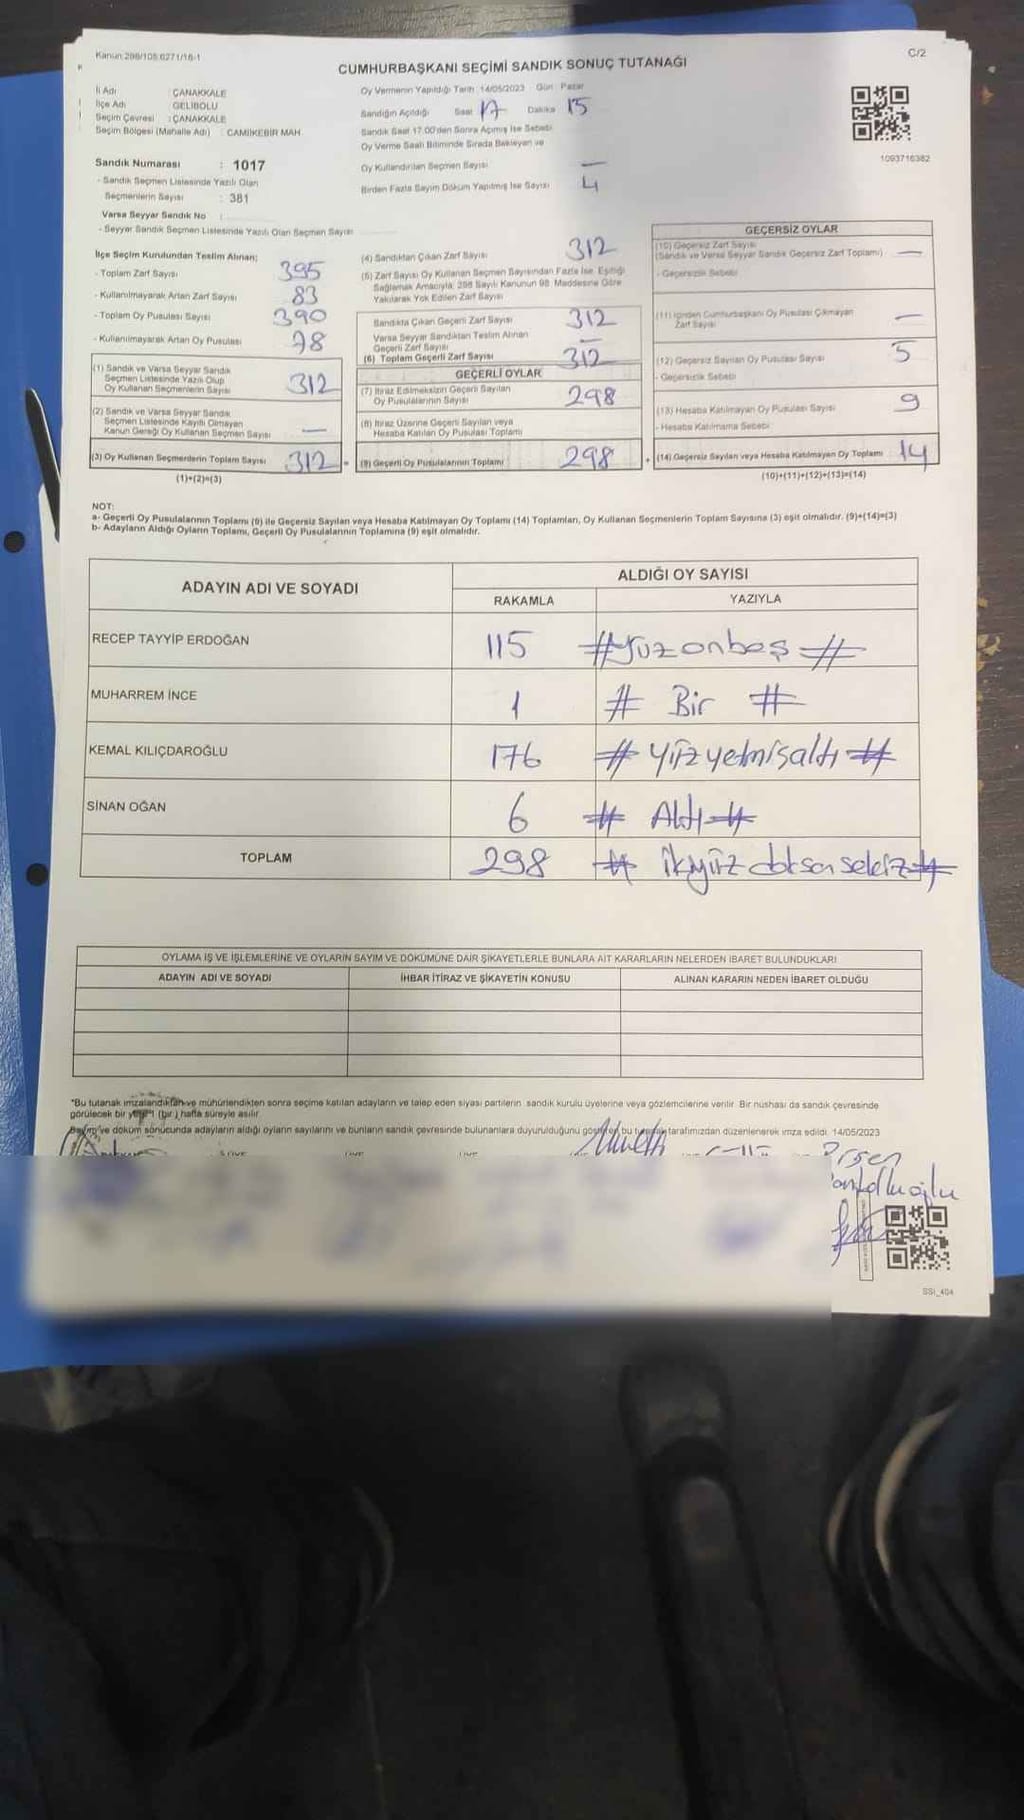 Kanun:298/105:6271/16-1
C/2
CUMHURBAŞKANI SEÇİMİ SANDIK SONUÇ TUTANAĞI
İl Adı : ÇANAKKALE
İlçe Adı : GELİBOLU
Seçim Çevresi : ÇANAKKALE
Seçim Bölgesi (Mahalle Adı) : CAMİİKEBİR MAH.
Oy Vermenin Yapıldığı Tarih :14/05/2023 Gün Pazar
Sandığın Açıldığı Saat 17 Dakika 15
Sandık Saat 17.00'den Sonra Açımış İse Sebebi
Oy Verme Saati Bitiminde Sırada Bekleyen ve
Oy Kullandırılan Seçmen Sayısı —
Birden Fazla Sayım Döküm Yapılmış İse Sayısı 4
1093716382
Sandık Numarası : 1017
- Sandık Seçmen Listesinde Yazılı Olan
Seçmenlerin Sayısı : 381
Varsa Seyyar Sandık No :
- Seyyar Sandık Seçmen Listesinde Yazılı Olan Seçmen Sayısı
İlçe Seçim Kurulundan Teslim Alınan;
- Toplam Zarf Sayısı 395
- Kullanılmayarak Artan Zarf Sayısı 83
- Toplam Oy Pusulası Sayısı 390
- Kullanılmayarak Artan Oy Pusulası 78
(1) Sandık ve Varsa Seyyar Sandık
Seçmen Listesinde Yazılı Olup
Oy Kullanan Seçmenlerin Sayısı 312
(2) Sandık ve Varsa Seyyar Sandık
Seçmen Listesinde Kayıtlı Olmayan
Kanun Gereği Oy Kullanan Seçmen Sayısı —
(3) Oy Kullanan Seçmenlerin Toplam Sayısı 312 =
(1)+(2)=(3)
(4) Sandıktan Çıkan Zarf Sayısı 312
(5) Zarf Sayısı Oy Kullanan Seçmen Sayısından Fazla İse, Eşitliği
Sağlamak Amacıyla, 298 Sayılı Kanunun 98. Maddesine Göre
Yakılarak Yok Edilen Zarf Sayısı
Sandıkta Çıkan Geçerli Zarf Sayısı 312
Varsa Seyyar Sandıktan Teslim Alınan
Geçerli Zarf Sayısı —
(6) Toplam Geçerli Zarf Sayısı 312
GEÇERLİ OYLAR
(7) İtiraz Edilmeksizin Geçerli Sayılan
Oy Pusulalarının Sayısı 298
(8) İtiraz Üzerine Geçerli Sayılan veya
Hesaba Katılan Oy Pusulası Toplamı
(9) Geçerli Oy Pusulalarının Toplamı 298 +
GEÇERSİZ OYLAR
(10) Geçersiz Zarf Sayısı
(Sandık ve Varsa Seyyar Sandık Geçersiz Zarf Toplamı) —
- Geçersizlik Sebebi
(11) İçinden Cumhurbaşkanı Oy Pusulası Çıkmayan
Zarf Sayısı —
(12) Geçersiz Sayılan Oy Pusulası Sayısı 5
- Geçersizlik Sebebi
(13) Hesaba Katılmayan Oy Pusulası Sayısı 9
- Hesaba Katılmama Sebebi
(14) Geçersiz Sayılan veya Hesaba Katılmayan Oy Toplamı 14
(10)+(11)+(12)+(13)=(14)
NOT:
a- Geçerli Oy Pusulalarının Toplamı (9) ile Geçersiz Sayılan veya Hesaba Katılmayan Oy Toplamı (14) Toplamları, Oy Kullanan Seçmenlerin Toplam Sayısına (3) eşit olmalıdır. (9)+(14)=(3)
b- Adayların Aldığı Oyların Toplamı, Geçerli Oy Pusulalarının Toplamına (9) eşit olmalıdır.
ADAYIN ADI VE SOYADI
ALDIĞI OY SAYISI
RAKAMLA YAZIYLA
RECEP TAYYİP ERDOĞAN 115 #Yüzonbeş#
MUHARREM İNCE 1 # Bir #
KEMAL KILIÇDAROĞLU 176 # Yüzyetmişaltı #
SİNAN OĞAN 6 # Altı #
TOPLAM 298 # ikiyüz doksan sekiz #
OYLAMA İŞ VE İŞLEMLERİNE VE OYLARIN SAYIM VE DÖKÜMÜNE DAİR ŞİKAYETLERLE BUNLARA AİT KARARLARIN NELERDEN İBARET BULUNDUKLARI
ADAYIN ADI VE SOYADI İHBAR İTİRAZ VE ŞİKAYETİN KONUSU ALINAN KARARIN NEDEN İBARET OLDUĞU
*Bu tutanak imzalandıktan ve mühürlendikten sonra seçime katılan adayların ve talep eden siyasi partilerin sandık kurulu üyelerine veya gözlemcilerine verilir. Bir nüshası da sandık çevresinde
görülecek bir yere 1 (bir) hafta süreyle asılır.
Sayım ve döküm sonucunda adayların aldığı oyların sayılarını ve bunların sandık çevresinde bulunanlara duyurulduğunu gösteren bu tutanak tarafımızdan düzenlenerek imza edildi. 14/05/2023
SSI_404